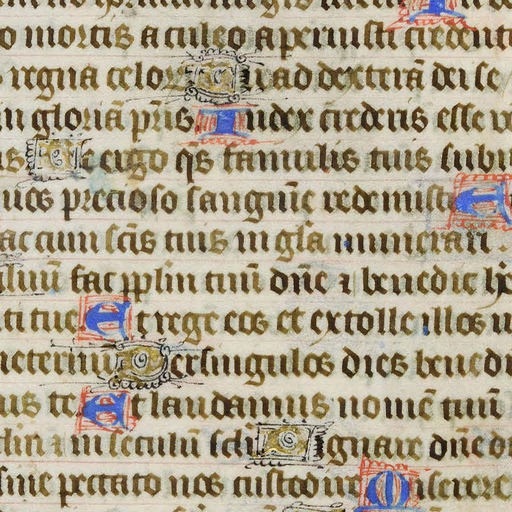 o mortis aculeo aperuisti credenti
regna celor Tu ad dexterā dei se
in gloriā pr̄is Iudex crederis esse v
Te ergo q̄s famulis tuis subu
uos precioso sanguīe redemisti E
ac cum sc̄is tuis in gl̄a munerari .
fac pplm tuū dn̄e ⁊ benedic
ti tue Et rege eos et extolle illos u
in eternū Per singulos dies benedi
us te Et laudamus nomē tuū
⁊ in seculū sc̄li Dignare dn̄e di
sine peccato nos custodire Miserere